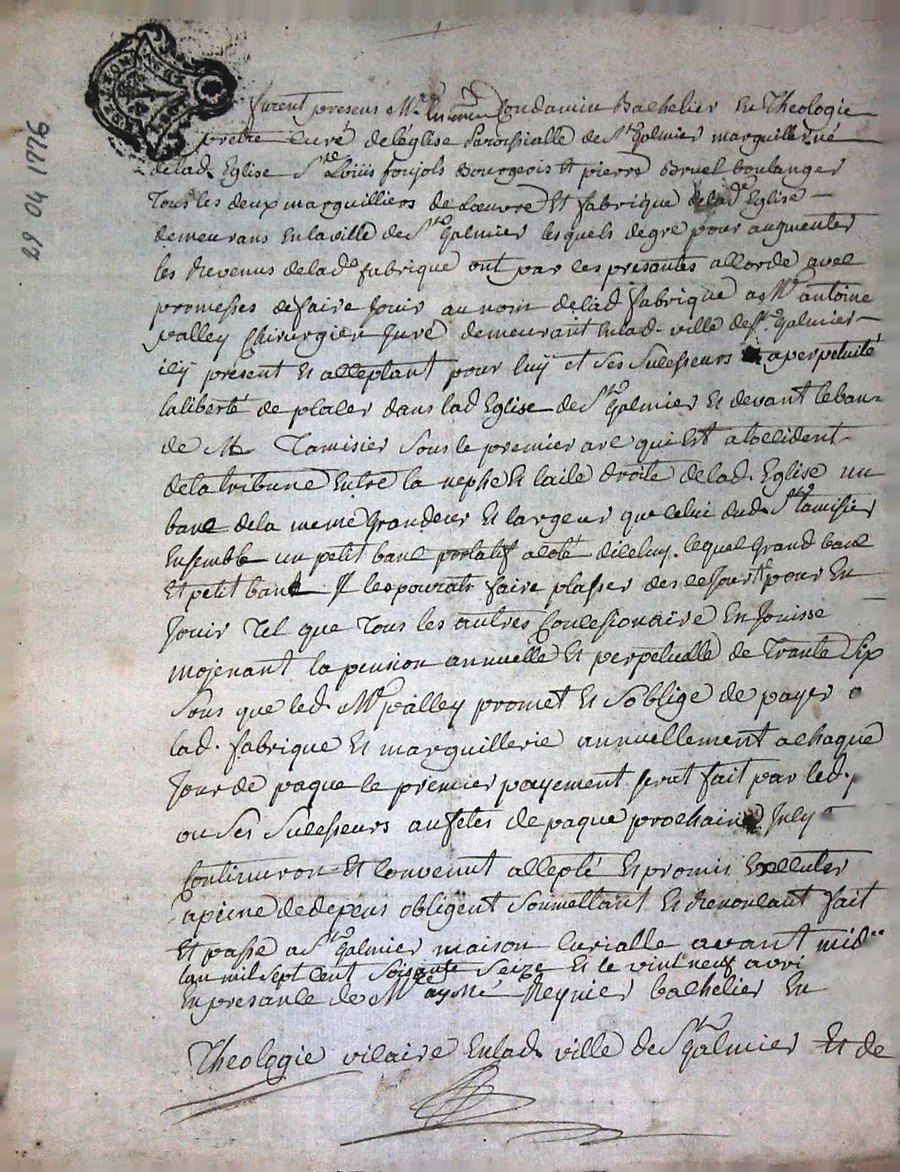 29 04 1776
furent presens Mre Condamin Bachelier En Theologie
pretre Curé de l'eglise Paroissialle de St Galmier marguiller né
de lad. Eglise Sr Loüis foujols Bourgeois Et pierre Bruel boulanger
Tous les deux marguilliers de L'œuvre Et fabrique de lad. Eglise
demeurans En la ville de St Galmier lesquels de gré pour augmenter
les Revenus de lad. fabrique ont par les presantes accordé avec
promesses de faire Jouir au nom de lad fabrique a Mr antoine
valley Chirurgien Juré demeurant En lad. ville de St. Galmier
icy present Et acceptant pour luy et Ses Sucesseurs a perpetuité
la liberté de placer dans lad Eglise de St Galmier Et devant le banc
de Mr Tamisier Sous le premier arc qui Est a loccident
de la tribune Entre la nephe Et laile droite de lad. Eglise un
banc de la meme Grandeur Et largeur que celui dud. Sr tamisier
Ensemble un petit banc portatif a coté diceluy. lequel Grand banc
Et petit banc Il les pourat faire plasser des ce Jourd. pour En
Jouir Tel que Tous les autres Concesionaire En Jouisse
mojenant la pension annuelle Et perpetuelle de Trante Six
Sous que led. Mr valley promet Et S'oblige de payer a
lad. fabrique Et marguillerie annuellement a chaque
Jour de paque le premier payement serat fait par led.
ou Ses Sucesseurs au fetes de paque prochaine
Continueron Et Convenut accepté Et promis Executer
a peine de depens obligent Soumettant Et Renoncant fait
Et passé a St Galmier maison Curialle avant midi
Lan mil Sept Cent Soisante Seize Et le vint neuf avri
En presance de Mre aymé Reynier bachelier En
Theologie vicaire En lad. ville de St Galmier Et de